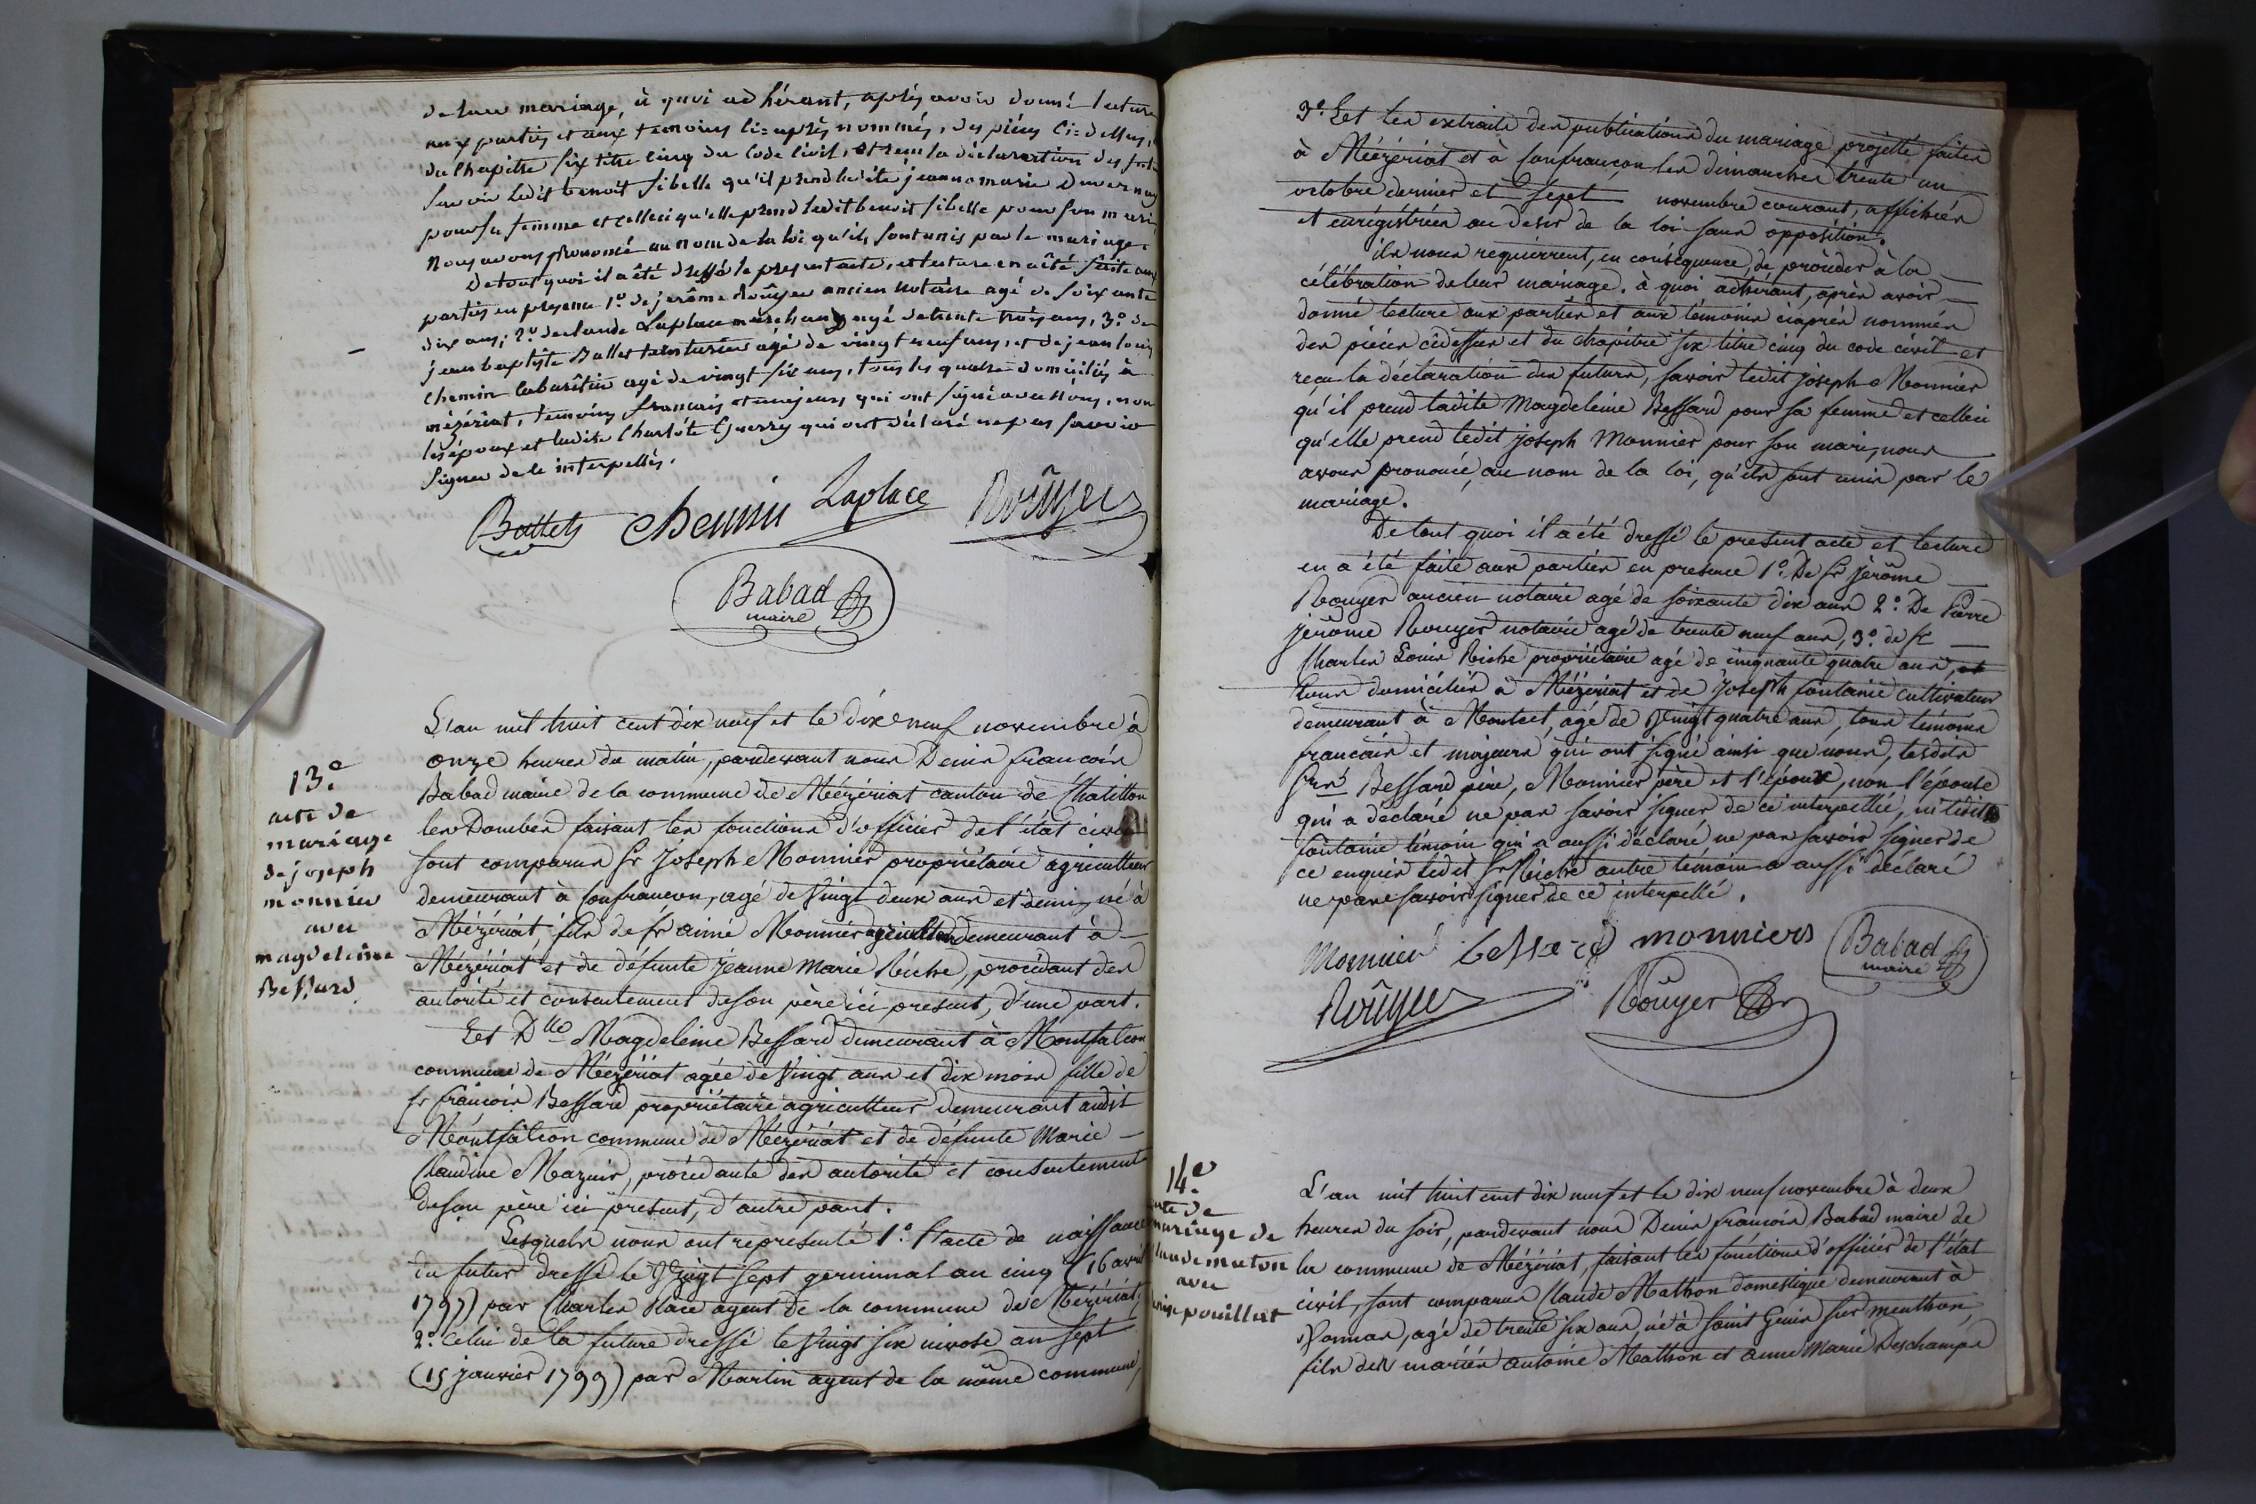 de leur mariage, à quoi adhérant, après avoir donné lecture
aux parties et aux temoins ci=après nommés, des pièces ci=dessus,
du chapitre six titre cinq du Code Civil, et reçu la déclaration des futurs
savoir ledit benoit sibelle qu'il prend ladite jeanne marie duvernay
pour sa femme et celleci qu'elle prend ledit benoit sibelle pour son mari,
nous avons prononcé au nom de la loi qu'ils sont unis par le mariage.
De tout quoi il a été dressé le present acte, et lecture en a été faite aux
parties en presence 1º. de jerôme Roûyer ancien notaire agé de soixante
dix ans, 2º. de claude Laplace marchand agé de trente trois ans, 3º. de
jean baptiste Battet teinturier agé de vingt neuf ans, et de jean louis
chemin cabarêtier agé de vingt six ans, tous les quatre domiciliés à
mézériat, temoins français et majeurs qui ont signé avec nous, non
les époux et ladite Charlôte Guerry qui ont déclaré ne pas savoir
signer de ce interpellés.
Battet chemin Laplace Roûyer
Babad
maire
13.e
acte de
mariage
de joseph
monnier
avec
magdeleine
Bessard
L'an mil huit cent dix neuf et le dix neuf novembre à
onze heures du matin, pardevant nous Denis françois
Babad maire de la commune de Mézériat canton de Chatillon
les Dombes faisant les fonctions d'officier de l'état civil
sont comparus sr Joseph Monnier propriétaire agriculteur
demeurant à Confrancon, agé de vingt deux ans et demi, né à
Mézériat, fils de sr aimé Monnier agriculteur demeurant à
Mézériat et de défunte jeanne Marie Riche, procédant des
autorité et consentement de son père ici present, d'une part.
Et Dlle Magdeleine Bessard demeurant à Montfalcon
commune de Mézériat agée de vingt ans et dix mois fille de
sr françois Bessard propriétaire agriculteur demeurant audit
Montfalcon commune de Mézériat et de défunte Marie
Claudine Mazuir, procédante des autorité et consentement
de son père ici present, d'autre part.
Lesquels nous ont representé 1º. l'acte de naissance
du futur dressé le vingt sept germinal an cinq (16 avril
1797) par Charles Place agent de la commune de Mézériat,
2º. celui de la future dressé le vingt six nivose an sept
(15 janvier 1799) par Martin agent de la même commune,
3º. Et les extraits des publications du mariage projetté faites
à Mézériat et à Confrancon les dimanches trente un
octobre dernier et sept novembre courant, affichées
et enrégistrées au desir de la loi sans opposition.
ils nous requierrent, en conséquence, de procéder à la
célébration de leur mariage. à quoi adhérant, après avoir
donné lecture aux parties et aux témoins ciaprès nommés
des pièces cidessus et du chapitre six titre cinq du code civil et
reçu la déclaration des futurs, savoir ledit joseph Monnier
qu'il prend ladite Magdeleine Bessard pour sa femme et celleci
qu'elle prend ledit joseph Monnier pour son mari, nous
avons prononcé, au nom de la loi, qu'ils sont unis par le
mariage.
De tout quoi il a été dressé le present acte et lecture
en a été faite aux parties en presence 1º. De sr jérôme
Rouyer ancien notaire agé de soixante dix ans 2º. De Pierre
jérôme Rouyer notaire agé de trente neuf ans, 3º. de sr
Charles Louis Riche propriétaire agé de cinquante quatre ans, et
tous domiciliés à Mézériat et de Joseph fontaine cultivateur
demeurant à Montcet, agé de vingt quatre ans, tous témoins
francais et majeurs qui ont signé ainsi que nous, lesdits
Bessard père, Monnier père et l'époux, non l'épouse
qui a déclaré ne pas savoir signer de ce interpellée, ni ledit
fontaine témoin qui a aussi déclaré ne pas savoir signer de
ce enquis ledit sr Riche autre témoin a aussi déclaré
ne pas savoir signer de ce interpellé.
Monnier bessard monniers Babad
maire
Roûyer Roûyer
14.e
acte de
mariage de
claude maton
avec
pouillat
L'an mil huit cent dix neuf et le dix neuf novembre à deux
heures du soir, pardevant nous Denis francois Babad maire de
la commune de Mézériat, faisant les fonctions d'officier de l'état
civil, sont comparus Claude Mathon domestique demeurant à
Vonnas, agé de trente six ans, né à saint Genis sur menthon,
fils des mariés antoine Mathon et anne Marie Deschamps